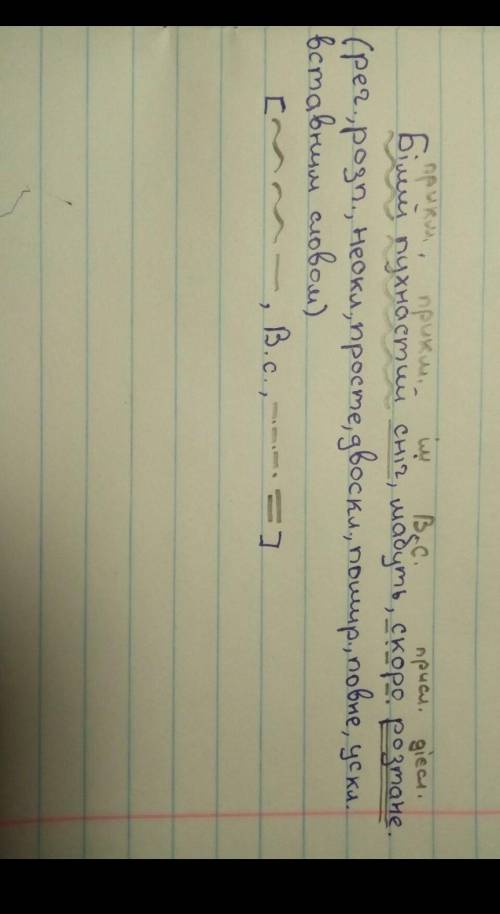 прикм. прикм. ім В.с. присл. дієсл.
Білий пухнастий сніг, мабуть, скоро розтане.
(реч., розп., неокл., просте, двоскл., пошир., повне, ускл.
вставним словом)
[ , В.с., ]